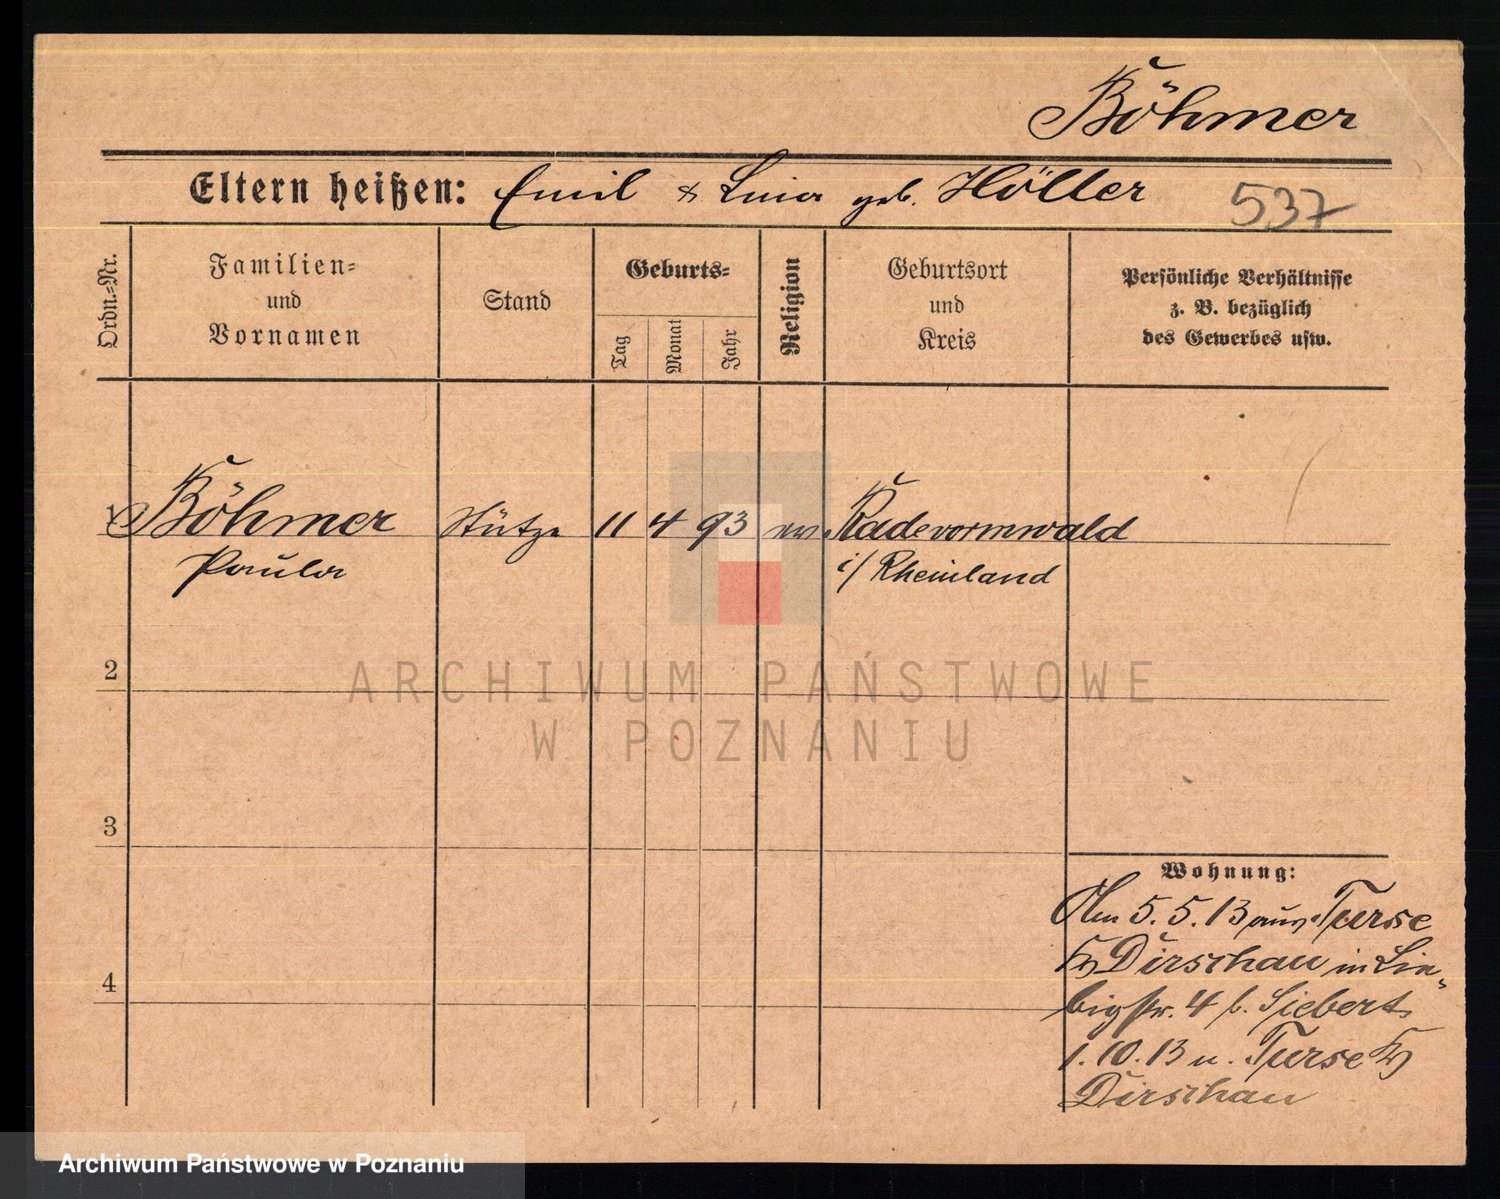 Böhmer
Eltern heißen: Emil & Lina geb. Höller 537
Ordn.-Nr.
Familien-
und
Vornamen
Stand
Geburts-
Tag
Monat
Jahr
Religion
Geburtsort
und
Kreis
Persönliche Verhältnisse
z. B. bezüglich
des Gewerbes usw.
1 Böhmer Stütze 11 4 93 ev Radevormwald
Paula i/ Rheinland
2
ARCHIWUM PAŃSTWOWE
W POZNANIU
3
Wohnung:
Am 5.5.13 aus Turse
Kr Dirschau in Lie-
4
bigstr. 4 b. Siebert
1.10.13 n. Turse Kr
Dirschau
Archiwum Państwowe w Poznaniu